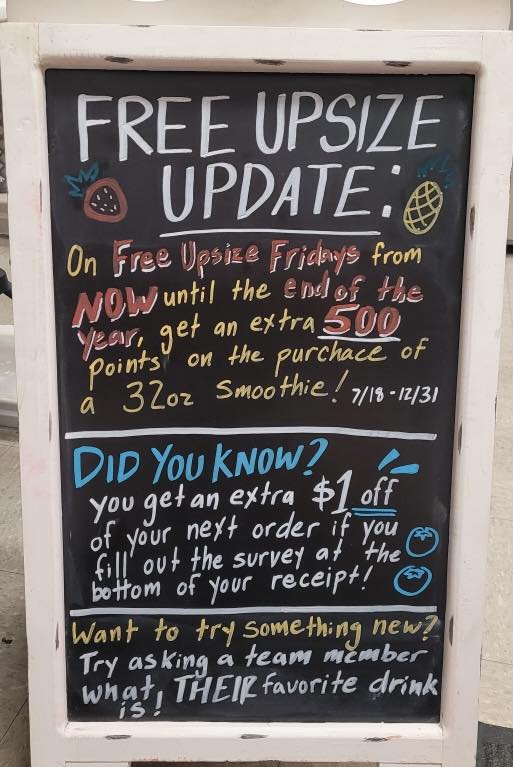 FREE UPSIZE
UPDATE:
On Free Upsize Fridays from
NOW until the end of the
year, get an extra 500
points on the purchace of
a 32oz Smoothie! 7/18-12/31
DID YOU KNOW?
you get an extra $1 off
of your next order if you
fill out the survey at the
bottom of your receipt!
Want to try something new?
Try asking a team member
what, THEIR favorite drink
is!